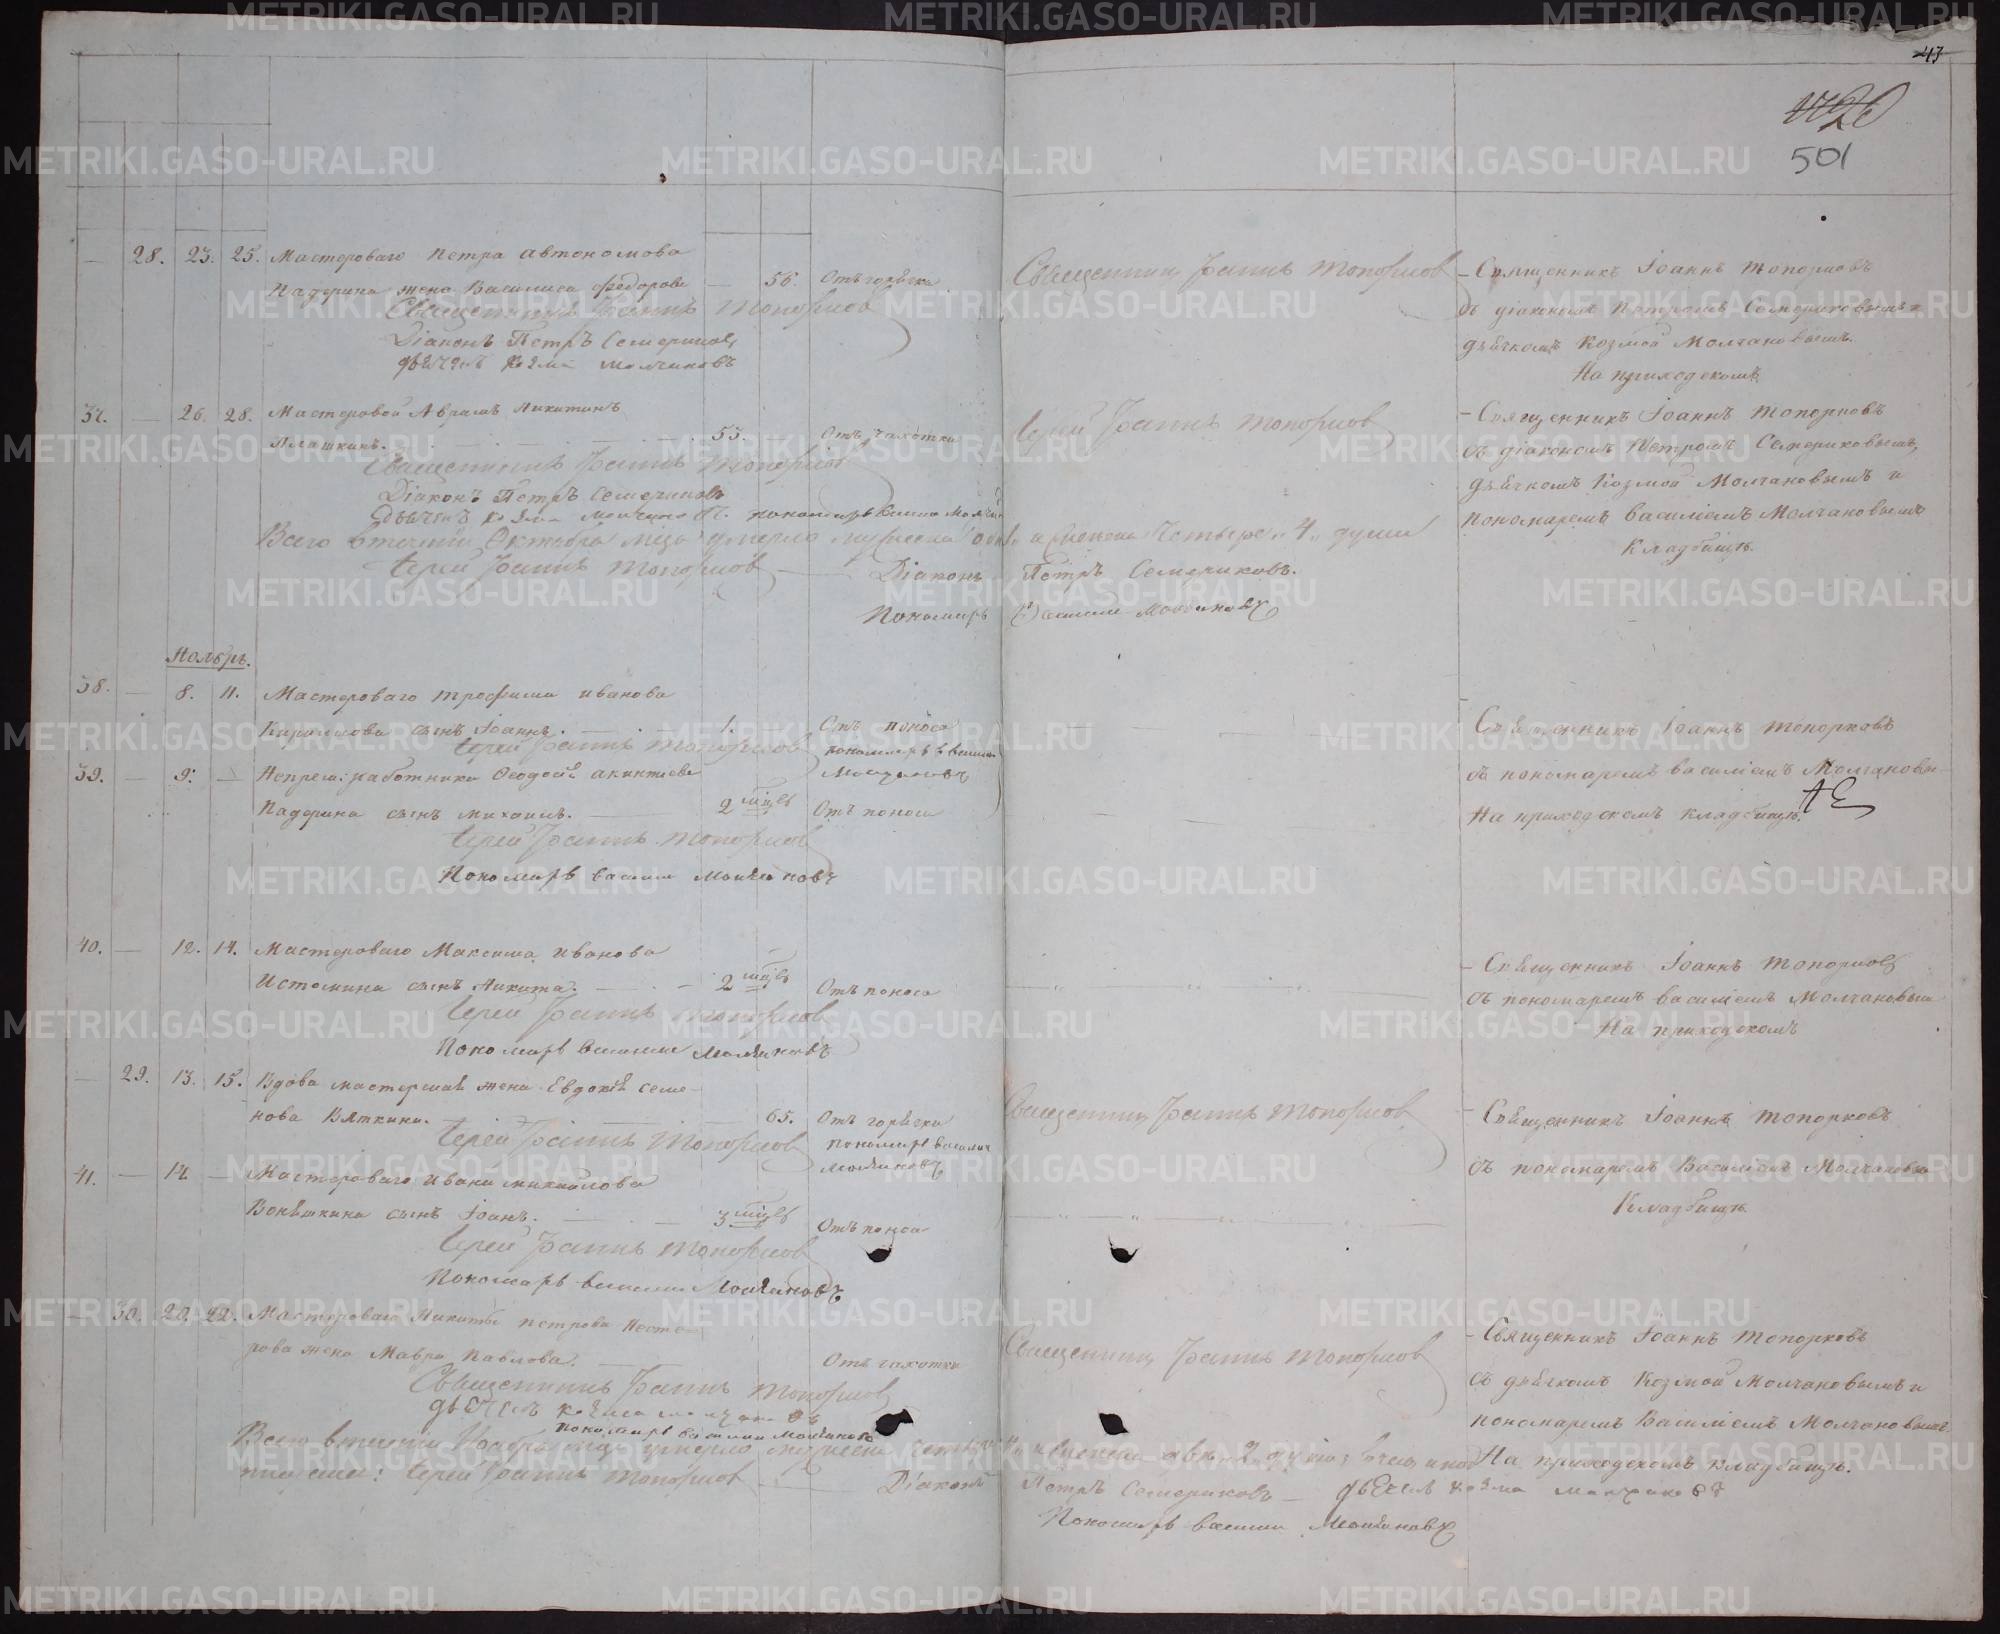 43
501
28. 23. 25. Мастероваго Петра Автономова
Падерина жена Василиса Федорова — 56. Отъ горячки
Священникъ Іоаннъ Топорковъ
Діаконъ Петръ Семериковъ
дьячекъ Козма Молчановъ
Священникъ Іоаннъ Топорковъ
Священникъ Іоаннъ Топорковъ
съ діакономъ Петромъ Семериковымъ и
дьячкомъ Козмой Молчановымъ.
На приходскомъ
37. — 26. 28. Мастеровой Аврамъ Никитинъ
Плашкинъ. 53. Отъ чахотки
Священникъ Іоаннъ Топорковъ
Діаконъ Петръ Семериковъ
Дьячекъ Козма Молчановъ. пономарь Василій
Іерей Іоаннъ Топорковъ
Священникъ Іоаннъ Топорковъ
съ діакономъ Петромъ Семериковымъ,
дьячкомъ Козмой Молчановымъ и
пономаремъ Василіемъ Молчановымъ
Кладбищѣ.
Всего втеченіи Октября мца умерло мужеска и женска четыре „4„ души
Іерей Іоаннъ Топорковъ — Діаконъ Петръ Семериковъ.
Пономарь Василій Молчановъ
Ноябрь.
38. — 8. 11. Мастероваго Трофима Иванова
Кирилова сынъ Іоаннъ. — 1. Отъ поноса
Іерей Іоаннъ Топорковъ пономарь Василій
Молчановъ
Священникъ Іоаннъ Топорковъ
съ пономаремъ Василіемъ Молчановы
На приходскомъ кладбищѣ.
39. — 9. — Непрем: работника Ѳеодосія Акинтіева
Падерина сынъ Михаилъ. — 2 мцвъ Отъ поноса
Іерей Іоаннъ Топорковъ
Пономарь Василій Молчановъ
40. — 12. 14. Мастероваго Максима Иванова
Истомина сынъ Никита. — 2 мцвъ Отъ поноса
Іерей Іоаннъ Топорковъ
Пономарь Василій Молчановъ
Священникъ Іоаннъ Топорковъ
съ пономаремъ Василіемъ Молчановым
На приходскомъ
— 29. 13. 15. Вдова мастерская жена Евдокія Семе-
нова Вяткина. — 65. Отъ горячки
Іерей Іоаннъ Топорковъ пономарь Василій
Молчановъ
Священникъ Іоаннъ Топорковъ
Священникъ Іоаннъ Топорковъ
съ пономаремъ Василіемъ Молчановы
Кладбищѣ
41. — 14. — Мастероваго Ивана Михайлова
сынъ Іоанъ. — 3 мцвъ Отъ поноса
Іерей Іоаннъ Топорковъ
Пономарь Василій Молчановъ
— 30. 20. 22. Мастероваго Никиты Петрова Несте-
рова жена Мавра Павлова. — Отъ чахотки
Священникъ Іоаннъ Топорковъ
дьячекъ Козма Молчановъ
пономарь Василій Молчановъ
Священникъ Іоаннъ Топорковъ
Священникъ Іоаннъ Топорковъ
съ дьячкомъ Козмой Молчановымъ и
пономаремъ Василіемъ Молчановымъ.
На приходскомъ кладбищѣ.
Всего втеченіи Ноября мца умерло мужеска четыре и женска двѣ „2„ души
Іерей Іоаннъ Топорковъ — Діаконъ Петръ Семериковъ — дьячекъ Козма Молчановъ
Пономарь Василій Молчановъ
METRIKI.GASO-URAL.RU